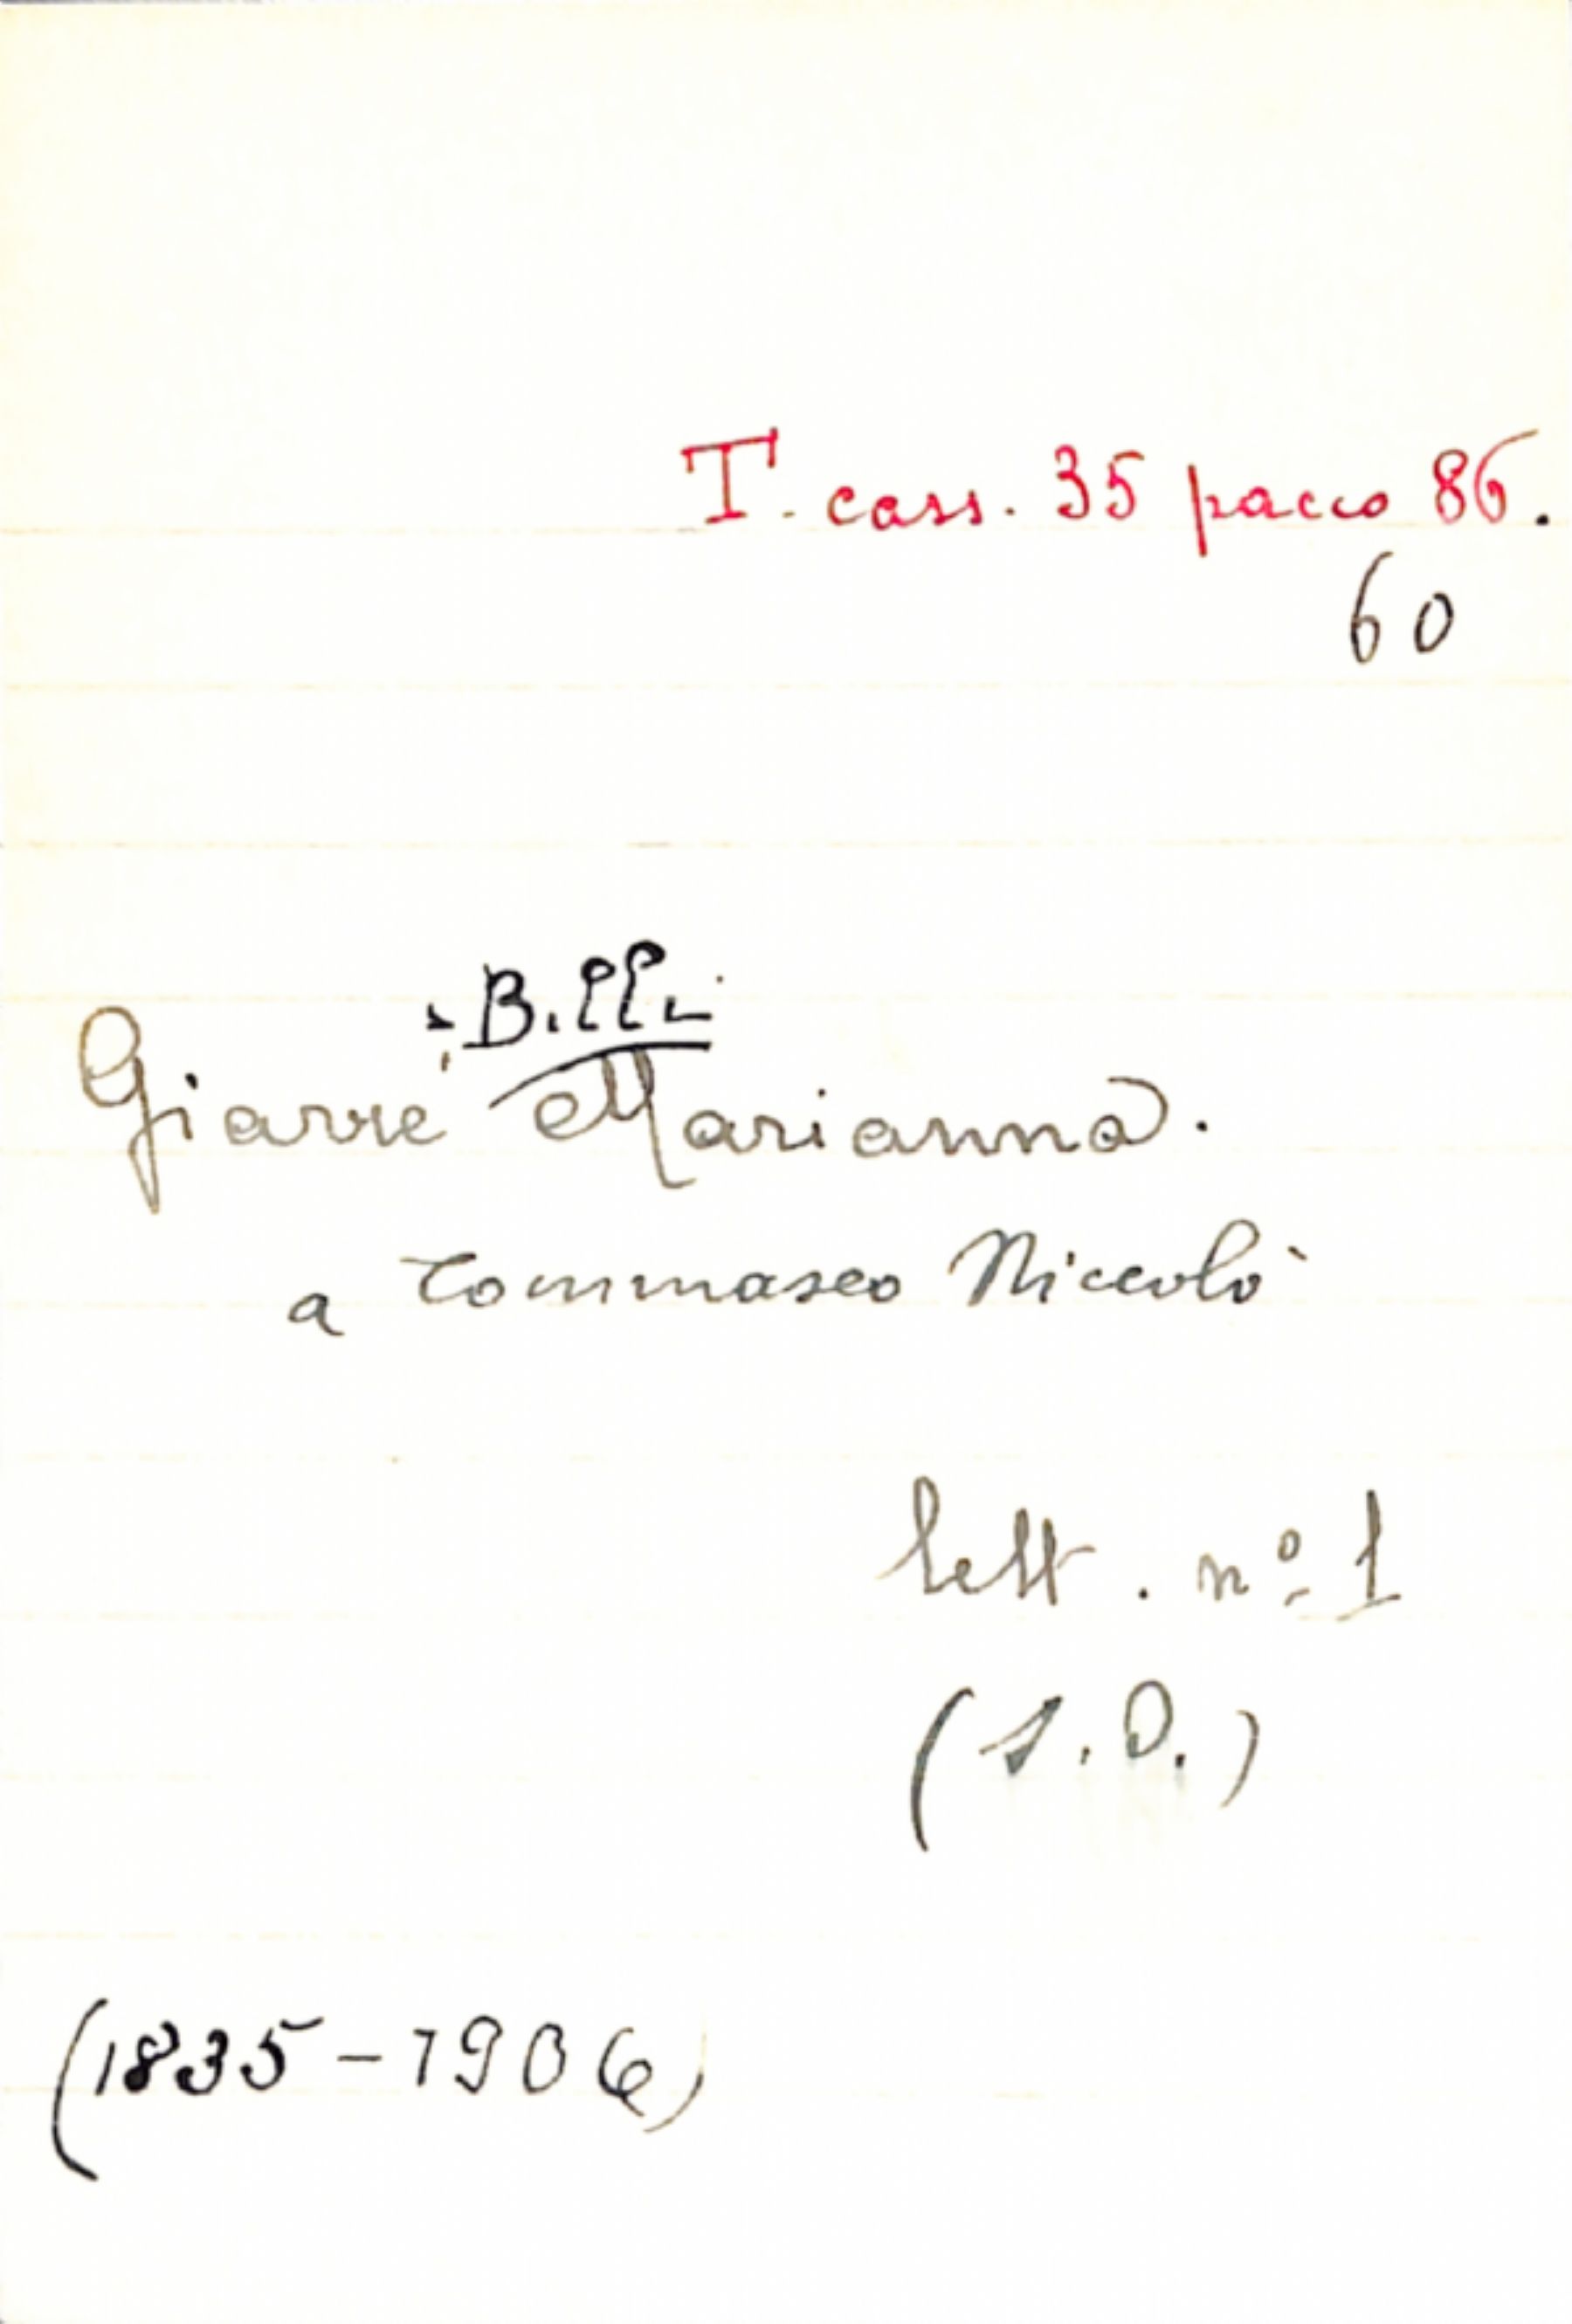 T. cass. 35 pacco 86.
60
Billi
Giarrè Marianna.
a Tommaseo Niccolò
lett. nº 1
(S.D.)
(1835-1906)